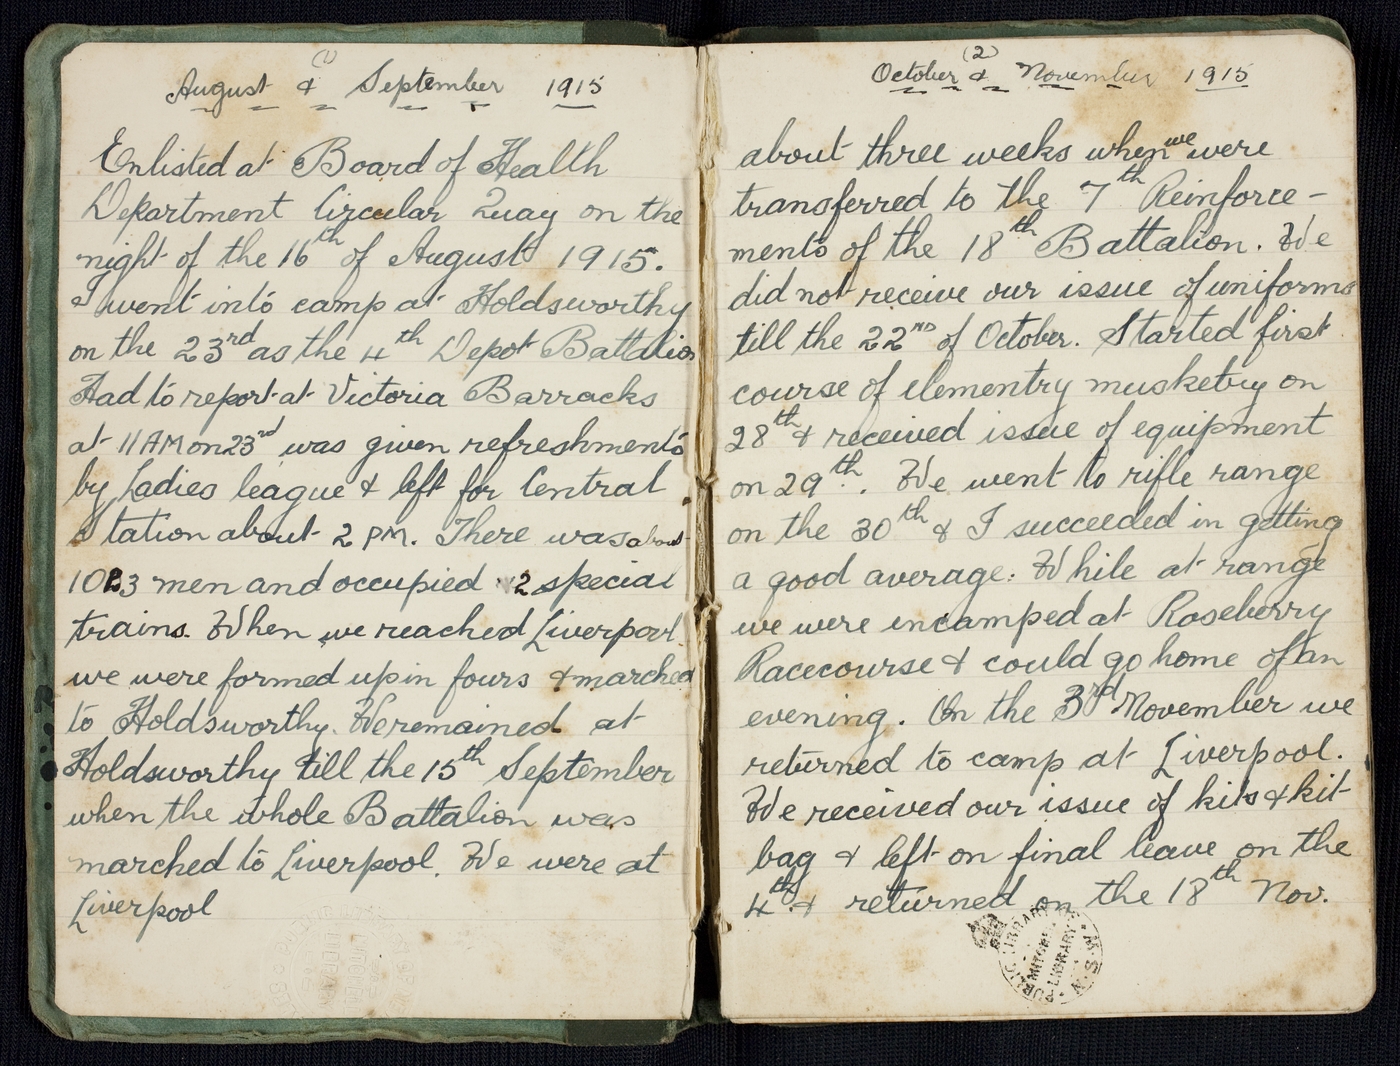 (1)
August & September 1915
Enlisted at Board of Health
Department Circular Quay on the
night of the 16th of August 1915.
I went into camp at Holdsworthy
on the 23rd as the 4th Depot Battalion
Had to report at Victoria Barracks
at 11 AM on 23rd was given refreshments
by Ladies league & left for Central
Station about 2 PM. There was about
1023 men and occupied 2 special
trains. When we reached Liverpool
we were formed up in fours & marched
to Holdsworthy. We remained at
Holdsworthy till the 15th September
when the whole Battalion was
marched to Liverpool. We were at
Liverpool
(2)
October & November 1915
about three weeks when we were
transferred to the 7th Reinforce-
ments of the 18th Battalion. We
did not receive our issue of uniforms
till the 22ND of October. Started first
course of elementry musketry on
28th & received issue of equipment
on 29th. We went to rifle range
on the 30th & I succeeded in getting
a good average. While at range
we were incamped at Roseberry
Racecourse & could go home of an
evening. On the 3rd November we
returned to camp at Liverpool.
We received our issue of kits & kit
bag & left on final leave on the
4th & returned on the 18th Nov.
PUBLIC LIBRARY OF N.S.W.
MITCHELL
LIBRARY